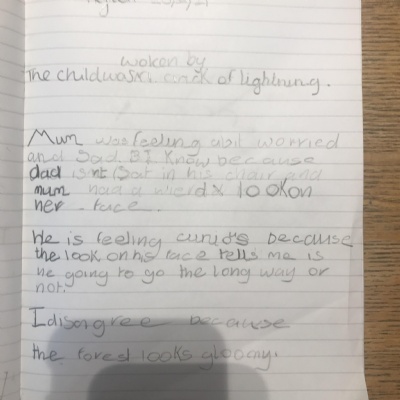 woken by
The child was a crack of lightning.
Mum was feeling abit worried
and Sad. B I Know because
dad isnt Sat in his chair and
mum had a wierd x look on
her face.
He is feeling curu's because
the look on his face tells me is
he going to go the long way or
not.
I disagree because
the forest looks gloomy.